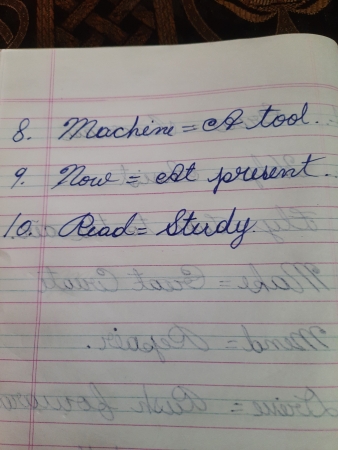 8. Machine = A tool.
9. Now = At present.
10. Read = Study.